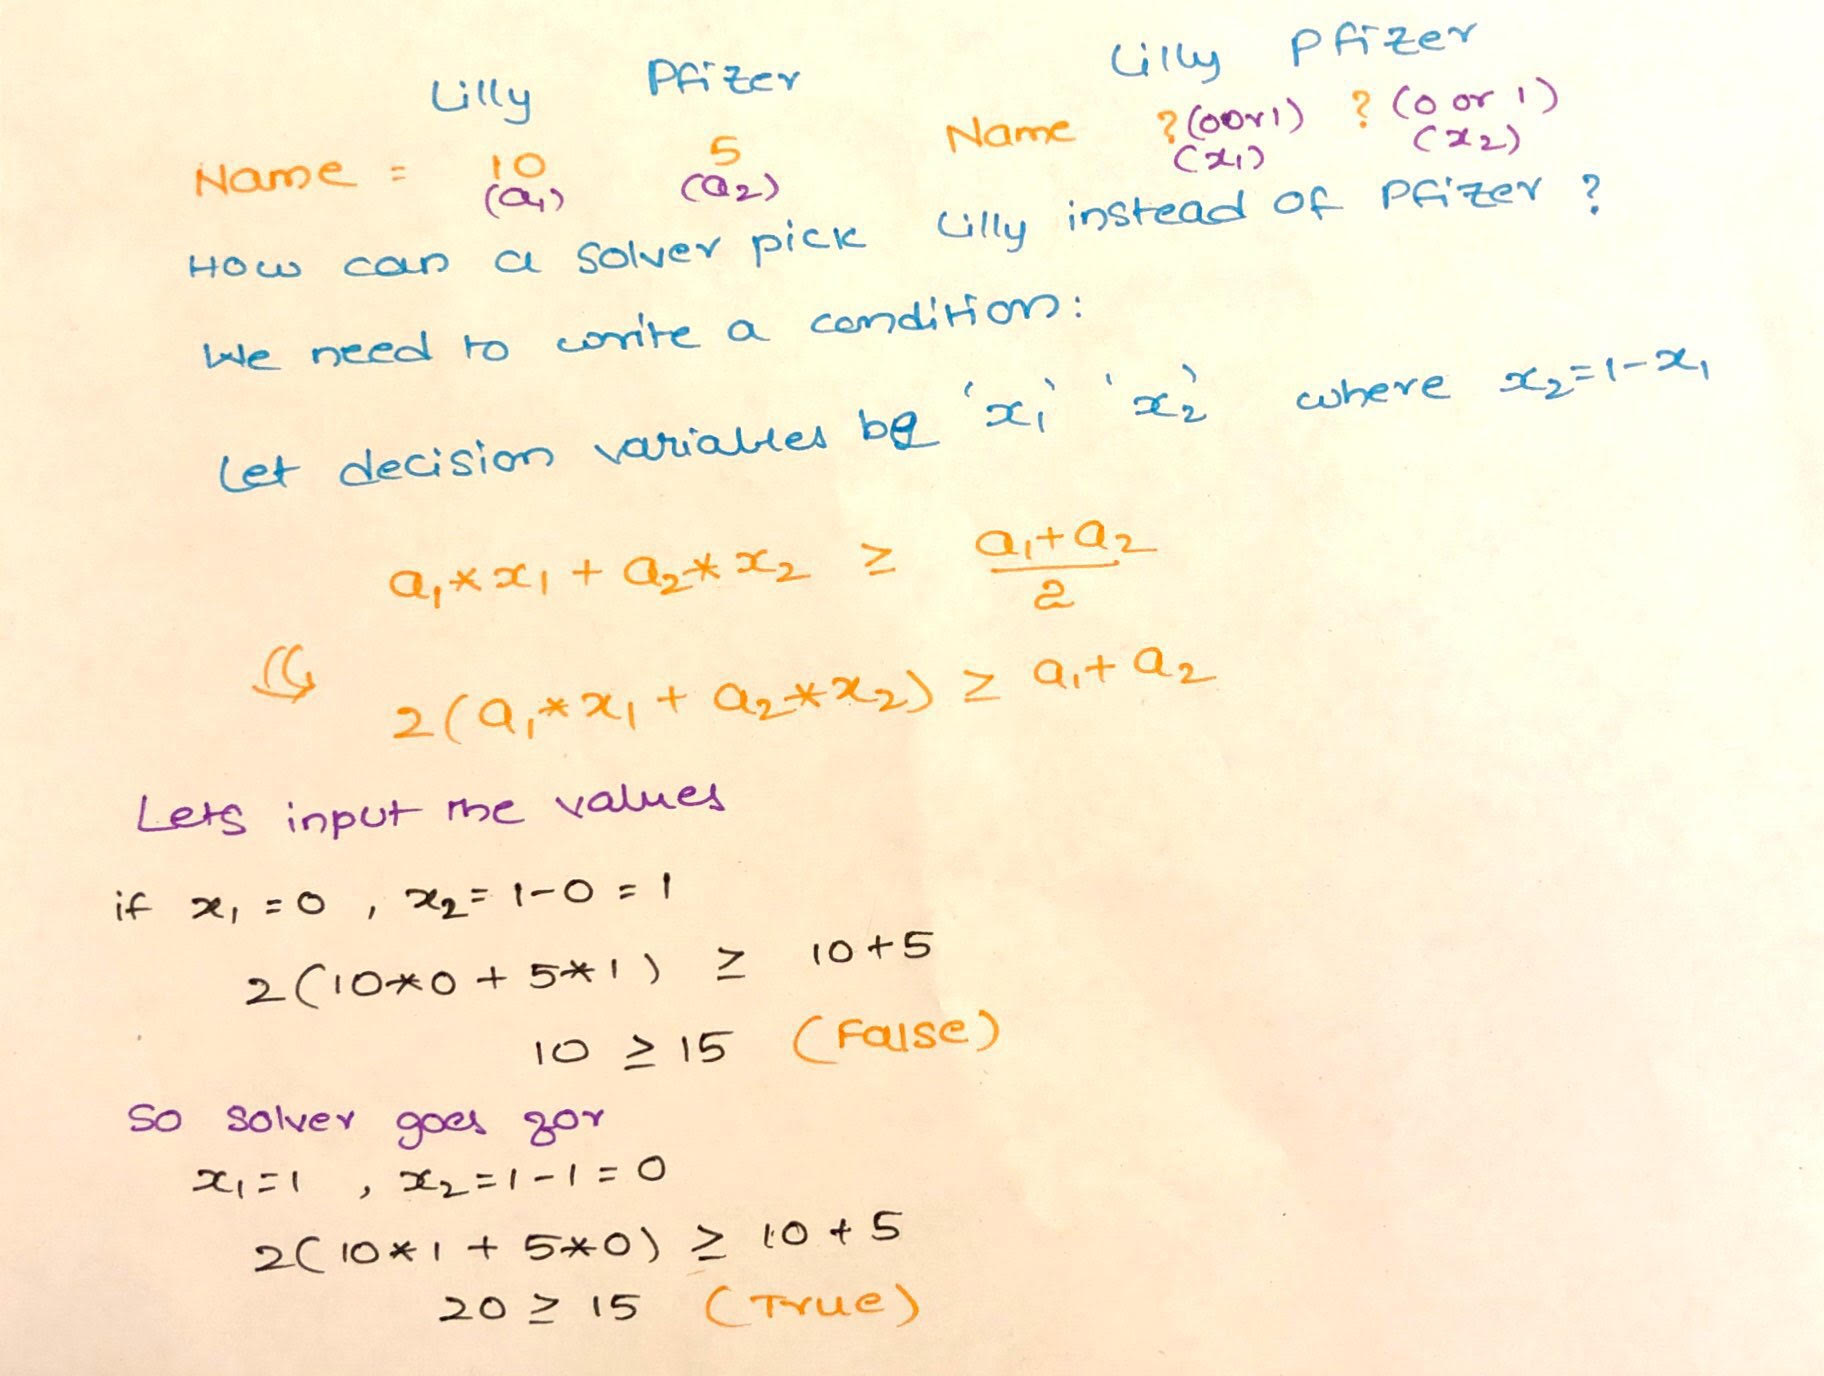 Lilly Pfizer
Name = 10 5
(a₁) (a₂)
Lilly Pfizer
Name ?(0or1) ?(0 or 1)
(x₁) (x₂)
How can a solver pick Lilly instead of Pfizer ?
We need to write a condition:
Let decision variables be 'x₁' 'x₂' where x₂=1-x₁
a₁*x₁ + a₂*x₂ ≥ (a₁+a₂)/2
2(a₁*x₁ + a₂*x₂) ≥ a₁+a₂
Lets input the values
if x₁ = 0 , x₂ = 1-0 = 1
2(10*0 + 5*1) ≥ 10+5
10 ≥ 15 (False)
So solver goes for
x₁=1 , x₂=1-1=0
2(10*1 + 5*0) ≥ 10 + 5
20 ≥ 15 (True)